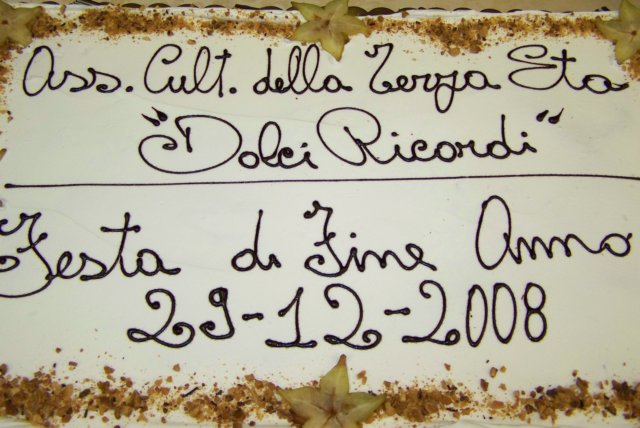 Ass. Cult. della Terza Eta
"Dolci Ricordi"
Festa di Fine Anno
29-12-2008